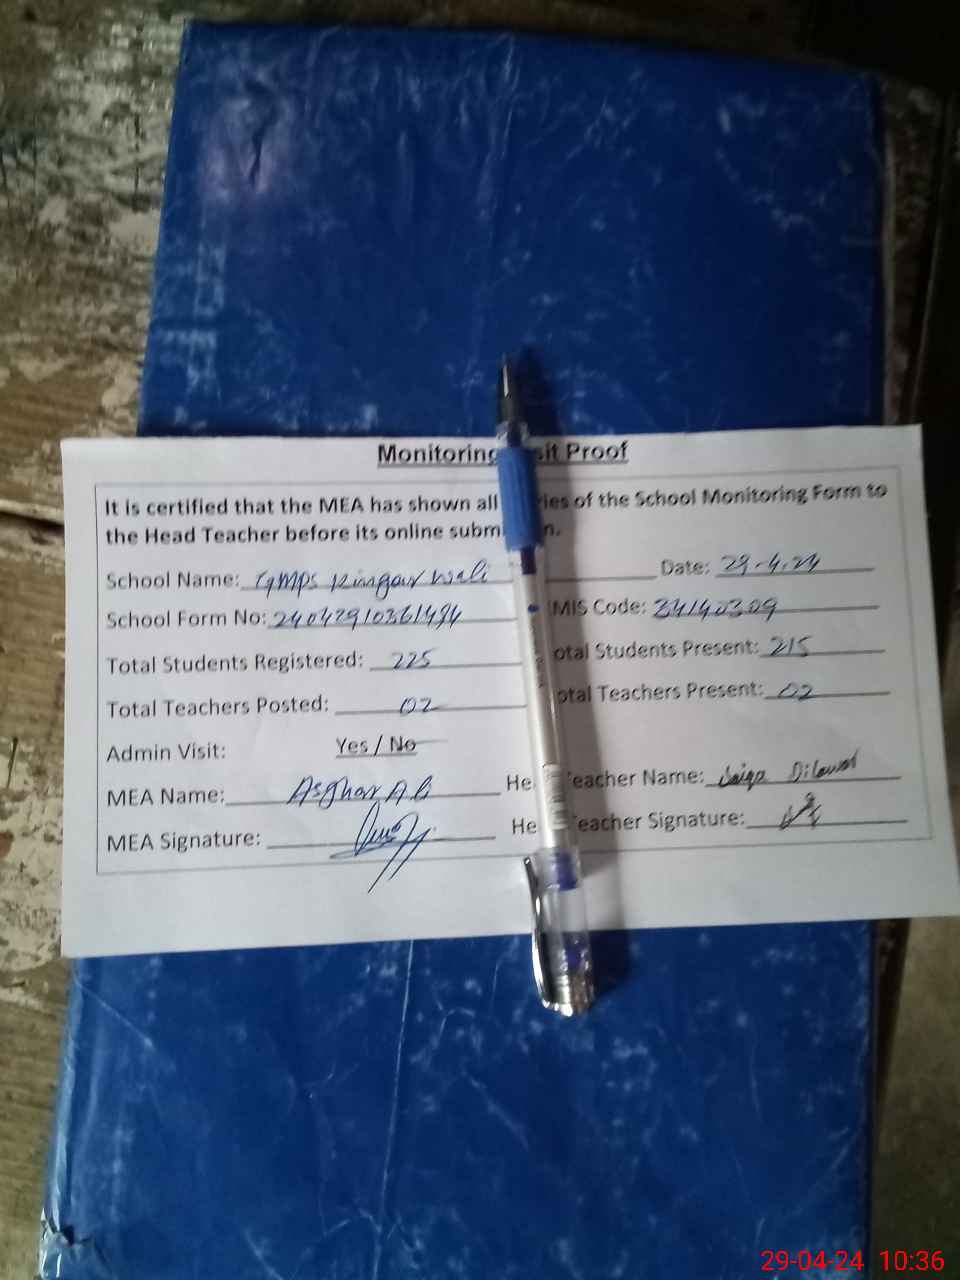 Monitoring sit Proof
It is certified that the MEA has shown all ries of the School Monitoring Form to
the Head Teacher before its online subm n.
School Name: GMPS Kingar Wali Date: 29-4-24
School Form No: MIS Code: 34140309
Total Students Registered: 225 otal Students Present: 215
Total Teachers Posted: 02 otal Teachers Present: 02
Admin Visit: Yes / No
MEA Name: Asghar Ali He Teacher Name: Dilawar
MEA Signature: He Teacher Signature:
29-04-24 10:36